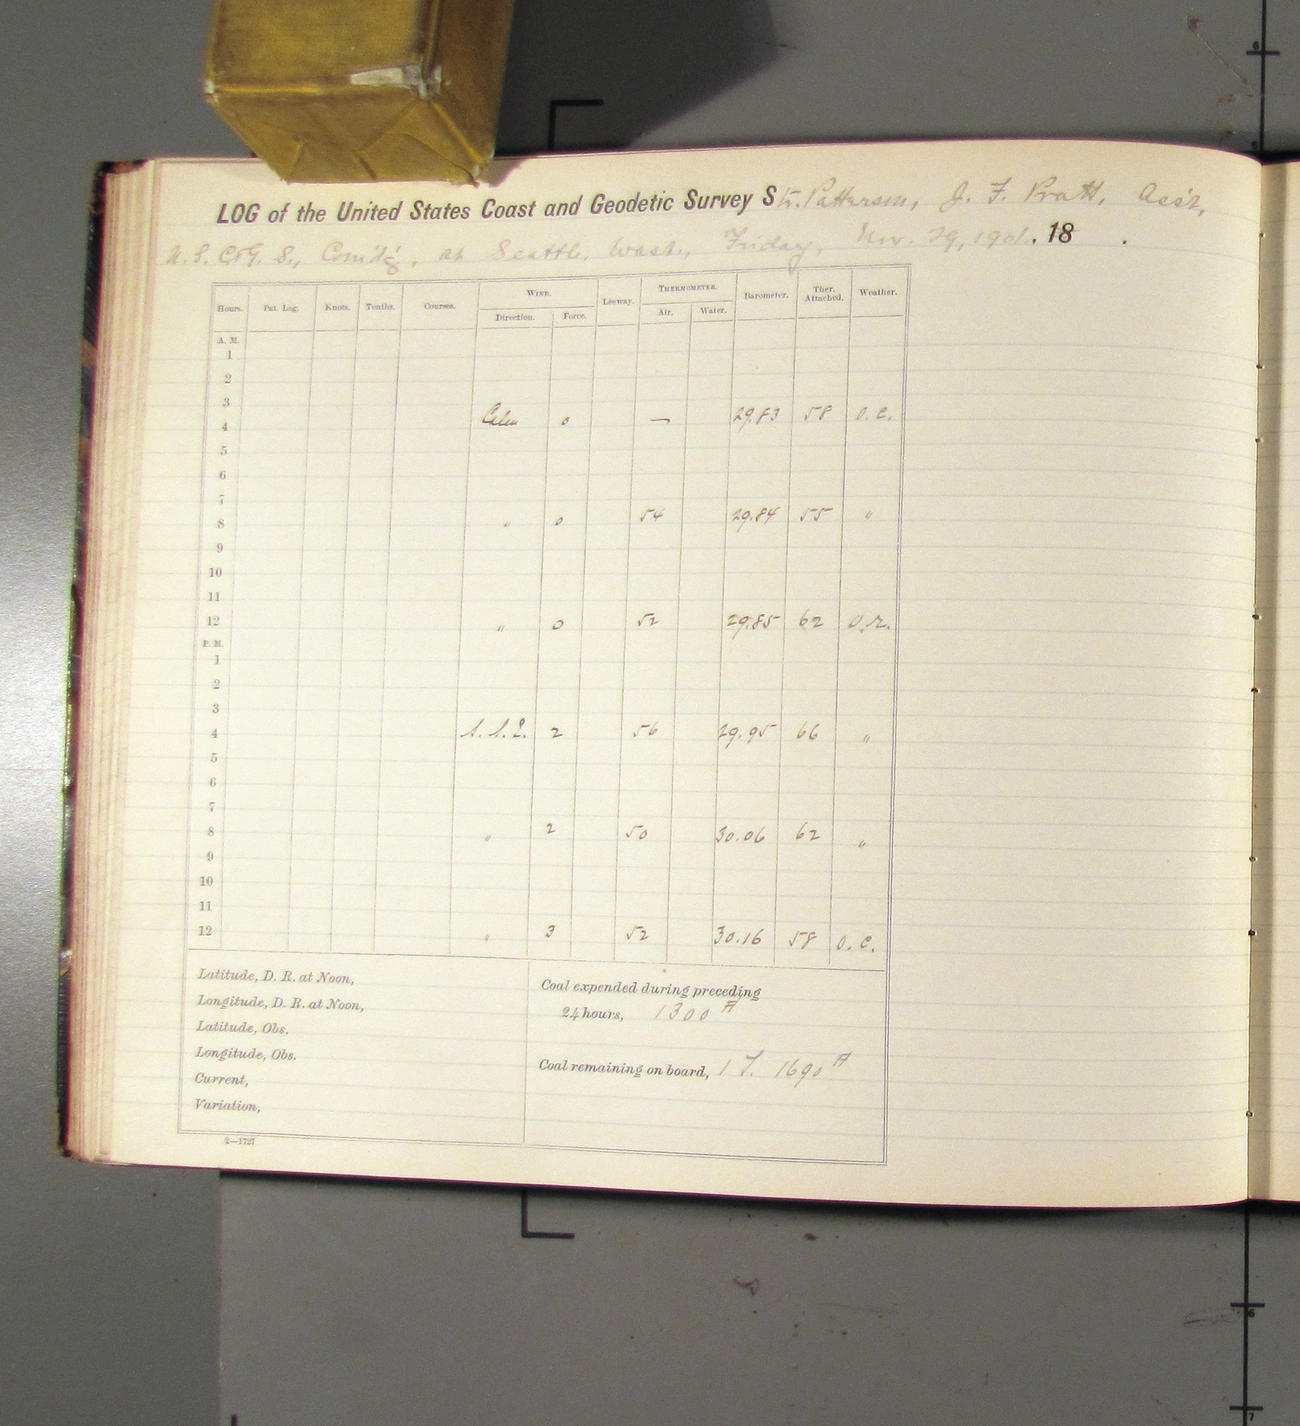 LOG of the United States Coast and Geodetic Survey Str. Patterson, J. F. Pratt, Ass't,
U. S. C. & G. S., Com'd'g, at Seattle, Wash., Friday, Nov. 29, 1901. 18 .
Hours. Pat. Log. Knots. Tenths. Courses. WIND. Leeway. THERMOMETER. Barometer. Ther. Attached. Weather.
Direction. Force. Air. Water.
A. M.
1
2
3
4 Calm 0 — 29.83 58 O. C.
5
6
7
8 " 0 54 29.84 55 "
9
10
11
12 " 0 52 29.85 62 O. R.
P. M.
1
2
3
4 S. S. E. 2 56 29.95 66 "
5
6
7
8 " 2 50 30.06 62 "
9
10
11
12 " 3 52 30.16 58 O. C.
Latitude, D. R. at Noon,
Longitude, D. R. at Noon,
Latitude, Obs.
Longitude, Obs.
Current,
Variation,
Coal expended during preceding
24 hours, 1300 #
Coal remaining on board, 1 T. 1690 #
2—1727
6
5
6
7